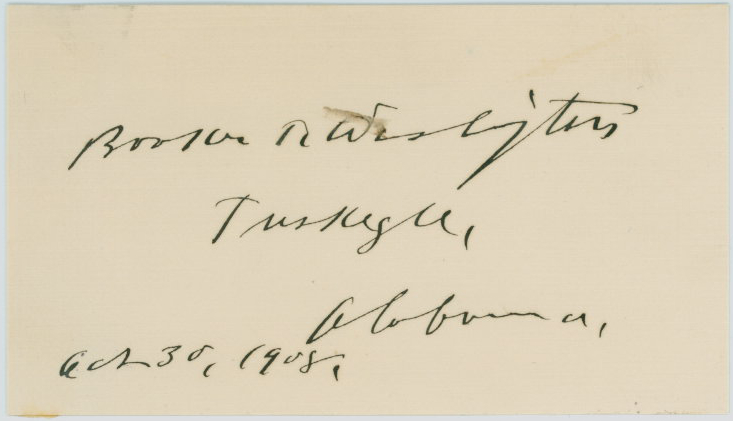 Booker T. Washington
Tuskegee,
Alabama,
Oct 30, 1908,